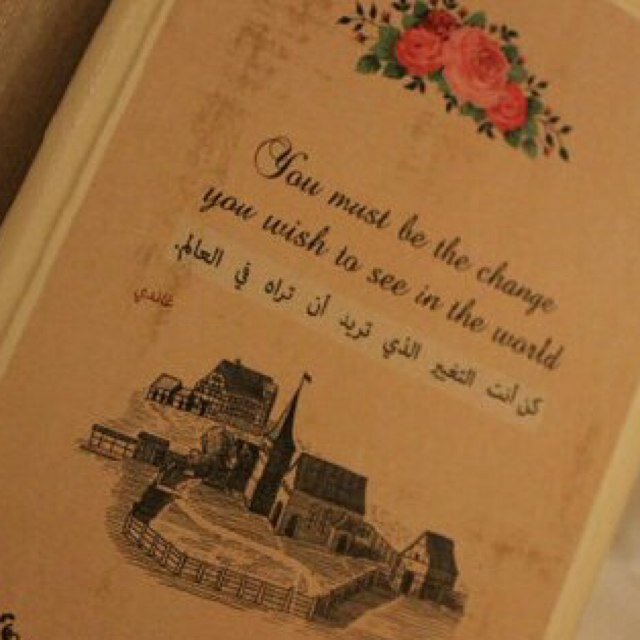 You must be the change
you wish to see in the world
كن أنت التغير الذي تريد أن تراه في العالم.
غاندي